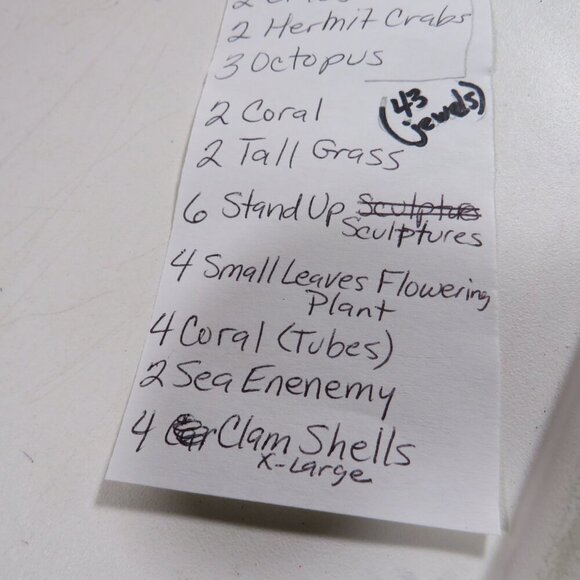 2 Hermit Crabs
3 Octopus
(43
jewels)
2 Coral
2 Tall Grass
6 Stand Up Sculptue
Sculptures
4 Small Leaves Flowering
Plant
4 Coral (Tubes)
2 Sea Enenemy
4 Clam Shells
X-Large